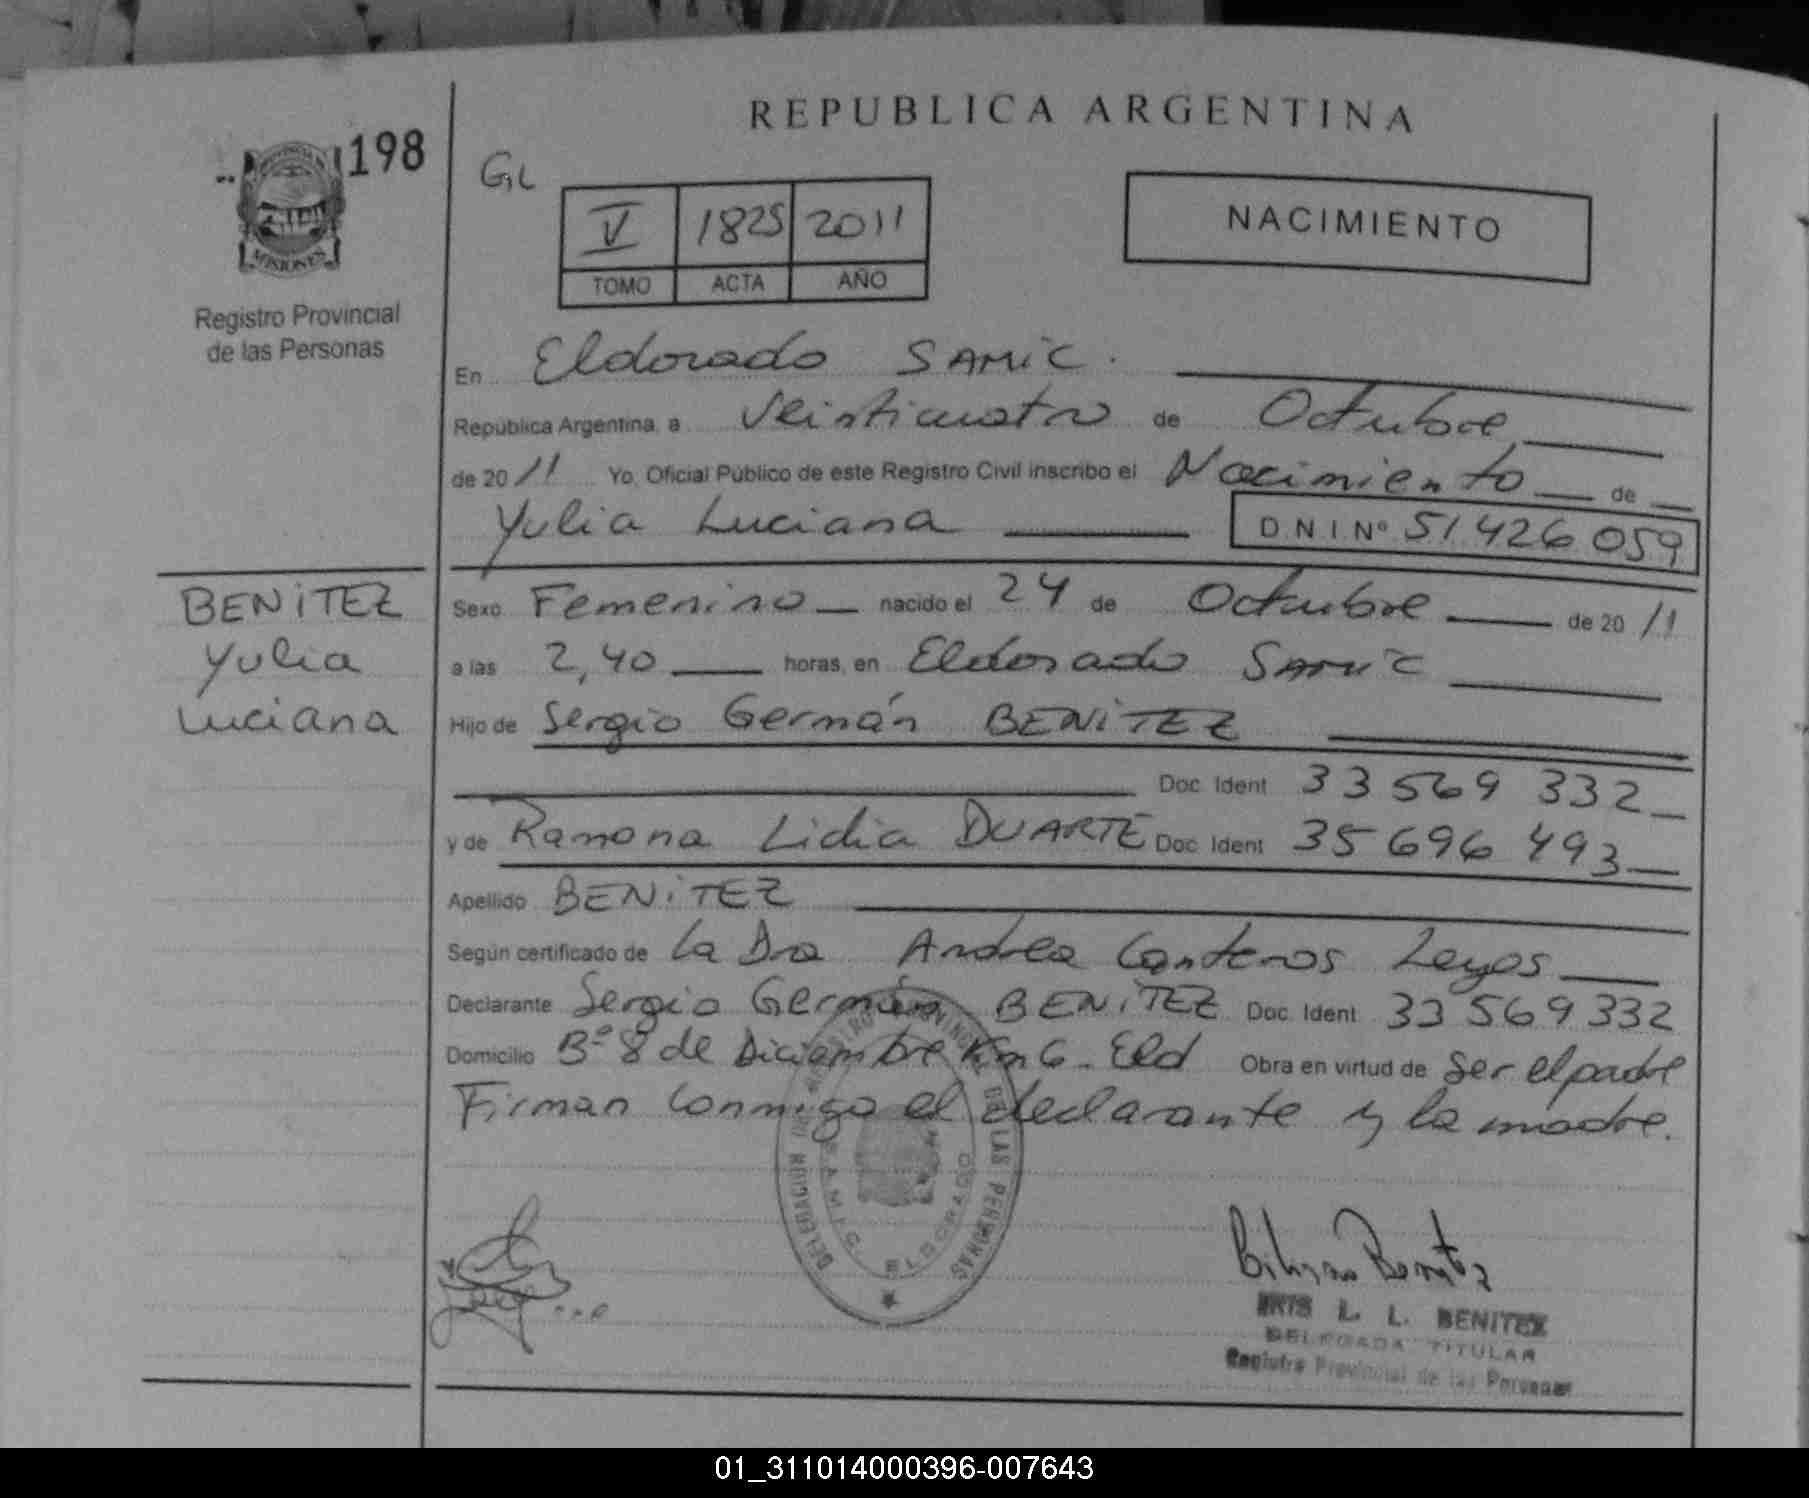 REPUBLICA ARGENTINA
198
PROVINCIA DE
MISIONES
Registro Provincial
de las Personas
GL
V 1825 2011
TOMO ACTA AÑO
NACIMIENTO
En Eldorado SAMIC.
República Argentina, a Veinticuatro de Octubre
de 2011 Yo, Oficial Público de este Registro Civil inscribo el Nacimiento de
Yulia Luciana D N I Nº 51 426 059
BENITEZ
Yulia
Luciana
Sexo Femenino nacido el 24 de Octubre de 2011
a las 2,40 horas, en Eldorado SAMIC
Hijo de Sergio Germán BENITEZ
Doc. Ident 33 569 332
y de Ramona Lidia DUARTE Doc. Ident 35 696 493
Apellido BENITEZ
Según certificado de La Dra Andrea Canteros Leyes
Declarante Sergio Germán BENITEZ Doc. Ident 33 569 332
Domicilio Bº 8 de Diciembre Km 6 - Eld Obra en virtud de ser el padre
Firman conmigo el declarante y la madre.
DE LAS PERSONAS
S.A.M.I.C. ELDORADO
Benitez
IRIS L. L. BENITEZ
DELEGADA TITULAR
Registro Provincial de las Personas
01_311014000396-007643